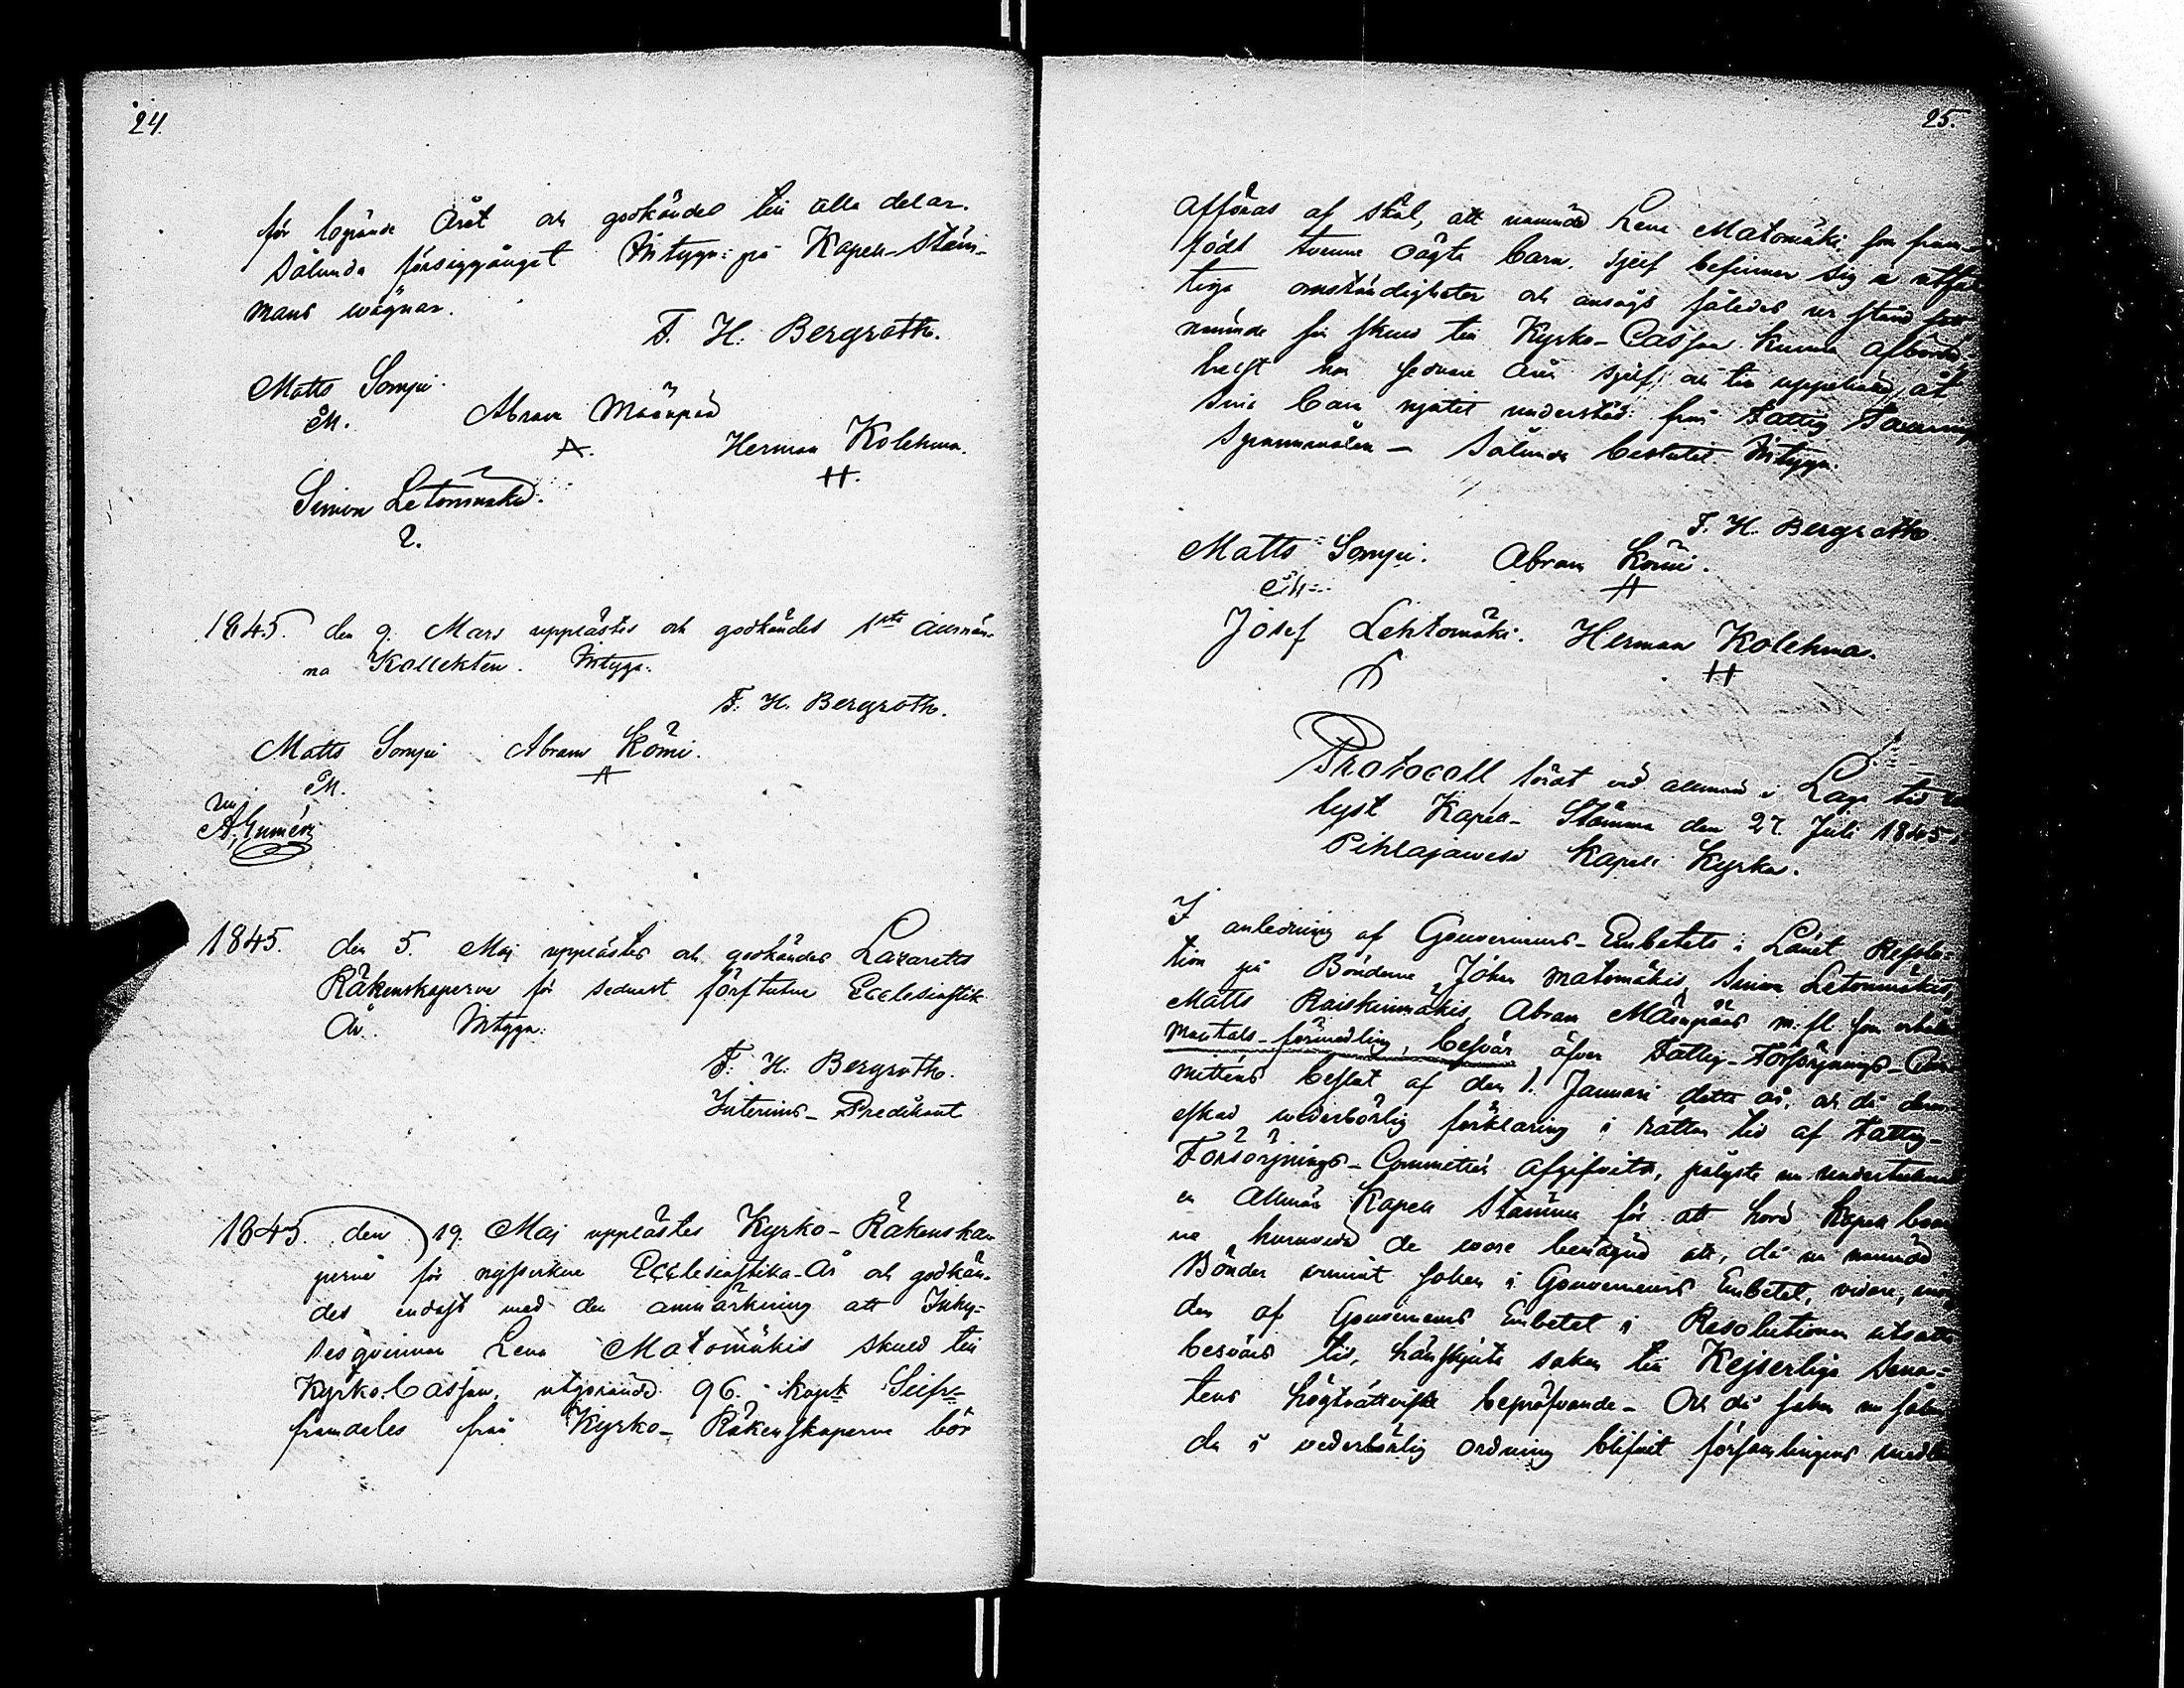 24.
för löpande Året och godkändes till alla delar.
Sålunda försiggånget Intyga: på Kapell-Stäm-
mans vägnar.
F. H. Bergroth.
Matts Sompi.
M.
Abram Määnpää
A.
Herman Kolehma.
H.
Simon Letonmäki.
2.
1845. den 9. Mars upplästes och godkändes 1sta allmän-
na Kollekten. Intyga.
F. H. Bergroth.
Matts Sompi Abram Kömi.
M. A
1845. den 5. Maj upplästes och godkändes Lazaretts
Räkenskaperne för sednast förflutne Ecclesiastik
År. Intyga:
F. H. Bergroth.
Interims-Predikant
1845. den 19. Maj upplästes Kyrko-Räkenska-
perne för Ecclesiastika-År och godkän-
des endast med den anmärkning att Inhy-
sesqvinnan Lena Matomäkis skuld till
Kyrko Cassan, utgörande 96. kopk Silfv
framdeles från Kyrko-Räkenskaperne bör
25.
afföras af skäl, att nämnde Lena Matomäki som fram-
födt tvenne oägta barn, sjelf befinner sig i utfat
tiga omständigheter och ansågs således ur stånd
nämnde sin skuld till Kyrko-Cassan kunna afbörda
helst hon sednare åren sjelf och till uppehälle åt
sina barn njutit understöd från Fattig
Spannmålen – Sålunda beslutet Intyga.
F. H. Bergroth
Matts Sompi. Abram Kömi.
M. A
Josef Lehtomäki. Herman Kolehma.
H
Protocoll fördt vid allmän i Laga tid
lyst Kapell-Stämma den 27. Juli 1845 i
Pihlajavesi Kapell Kyrka.
I anledning af Gouverneurs-Embetets i Länet Resolu-
tion på Bönderne Johan Matomäkis, Simon Letonmäkis,
Matts Raiskinmäkis, Abram Määnpääs m. fl. som
mantals-förmedling, besvär öfver Fattig-Försörjnings-Com-
miteens beslut af den 1. Januari detta år, och då
äskad vederbörlig förklaring i rättan tid af Fattig-
Försörjnings-Commiteen afgifvits, pålyste nu undertecknad
en Allmän Kapell Stämma för att höra Kapell
ne huruvida de vore benägna att, då nu nämnde
Bönder vunnit saken i Gouverneurs Embetet, vidare,
den af Gouverneurs Embetet i Resolutionen utsatta
besvärs tid, hänskjuta saken till Kejserliga Sena-
tens högrättvisa bepröfvande – Och då saken nu sålun
da i vederbörlig ordning blifvit församlingens